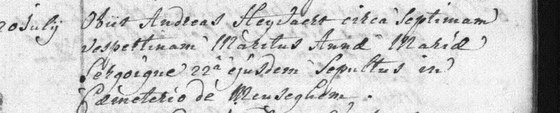 20 July Obiit Andreas Heyvaert circa Septimam
vespertinam Maritus Annæ Mariæ
Sergoigne 22â ejusdem Sepultus in
Cæmeterio de Meuseghem.